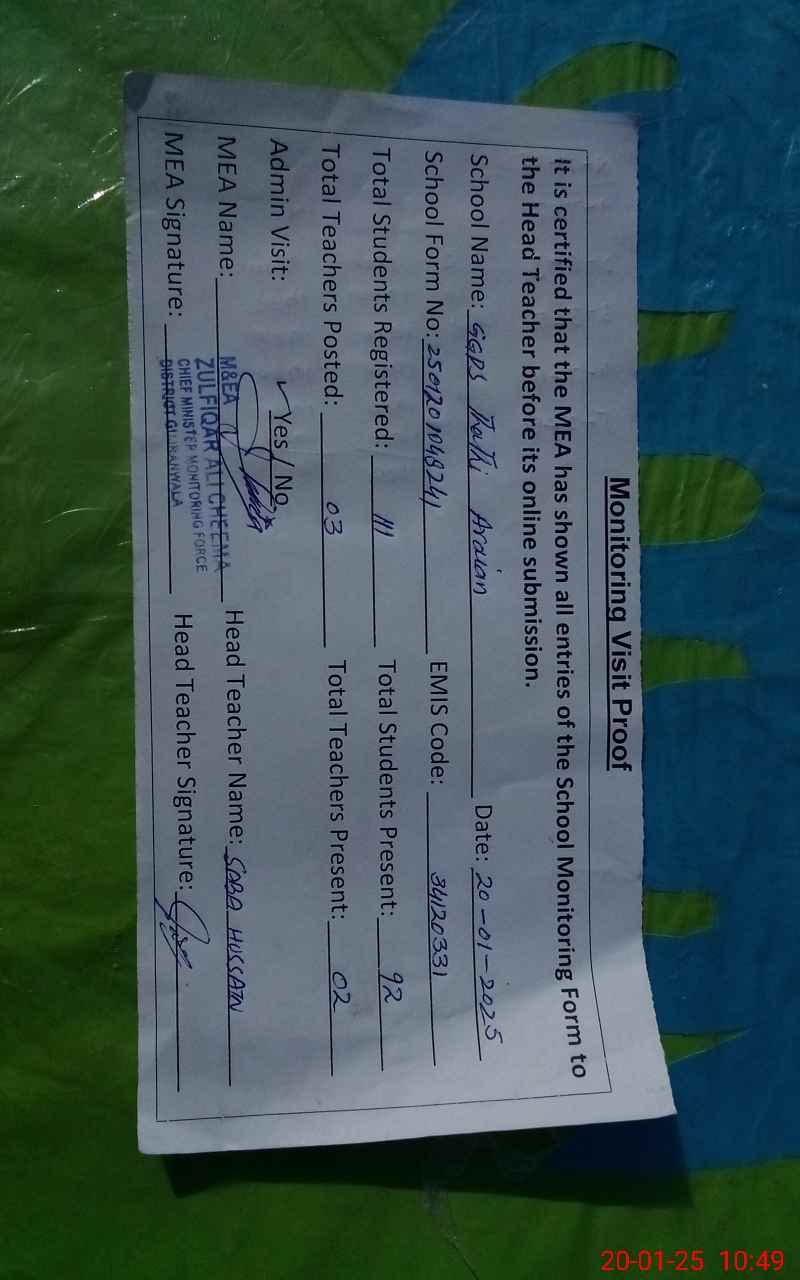 Monitoring Visit Proof
It is certified that the MEA has shown all entries of the School Monitoring Form to
the Head Teacher before its online submission.
School Name: GGPS Thathi Araian Date: 20-01-2025
School Form No: 2501201048241 EMIS Code: 34120331
Total Students Registered: 111 Total Students Present: 92
Total Teachers Posted: 03 Total Teachers Present: 02
Admin Visit: ✓ Yes / No
MEA Name: Head Teacher Name: SABA HUSSAIN
M&EA
ZULFIQAR ALI CHEEMA
CHIEF MINISTER MONITORING FORCE
DISTRICT GUJRANWALA
MEA Signature: Head Teacher Signature:
20-01-25 10:49